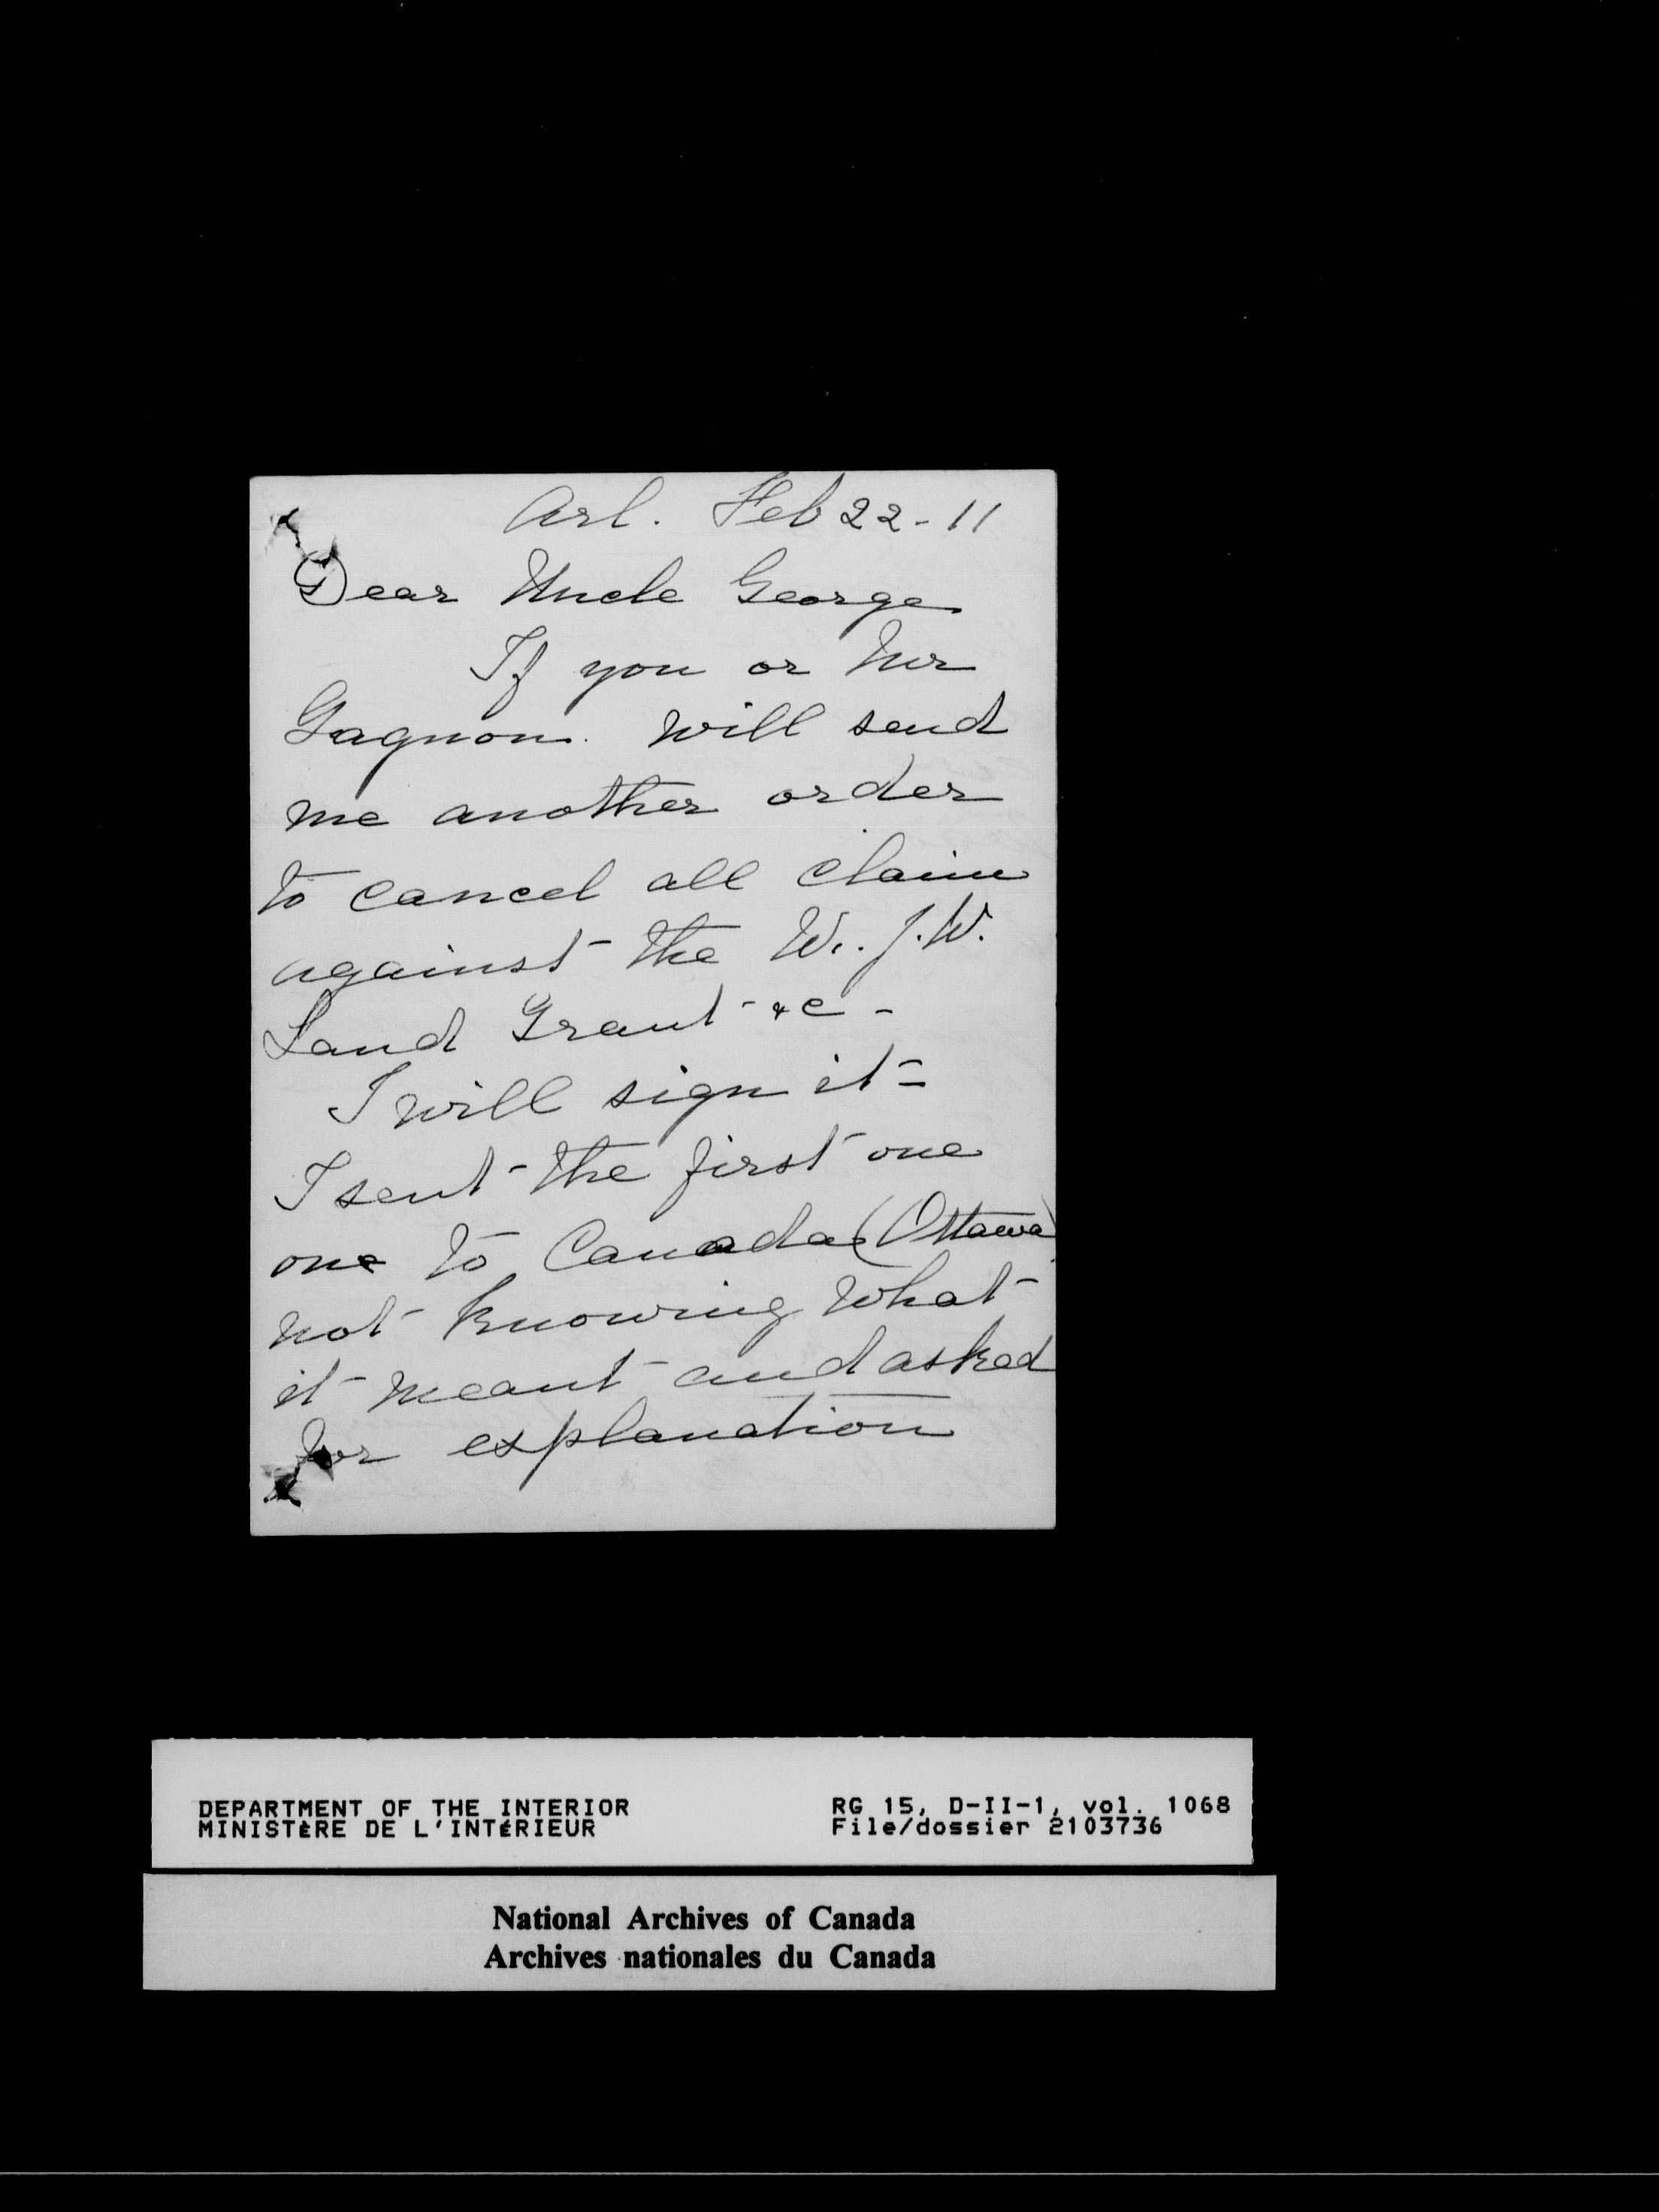 Arl. Feb 22-11
Dear Uncle George
If you or Mr
Gagnon. will send
me another order
to cancel all claim
against the W. J. W.
Land Grant &c -
I will sign it -
I sent the first one
one to Canada (Ottawa)
not knowing what
it meant and asked
for explanation
DEPARTMENT OF THE INTERIOR
MINISTÈRE DE L'INTÉRIEUR
RG 15, D-II-1, vol. 1068
File/dossier 2103736
National Archives of Canada
Archives nationales du Canada